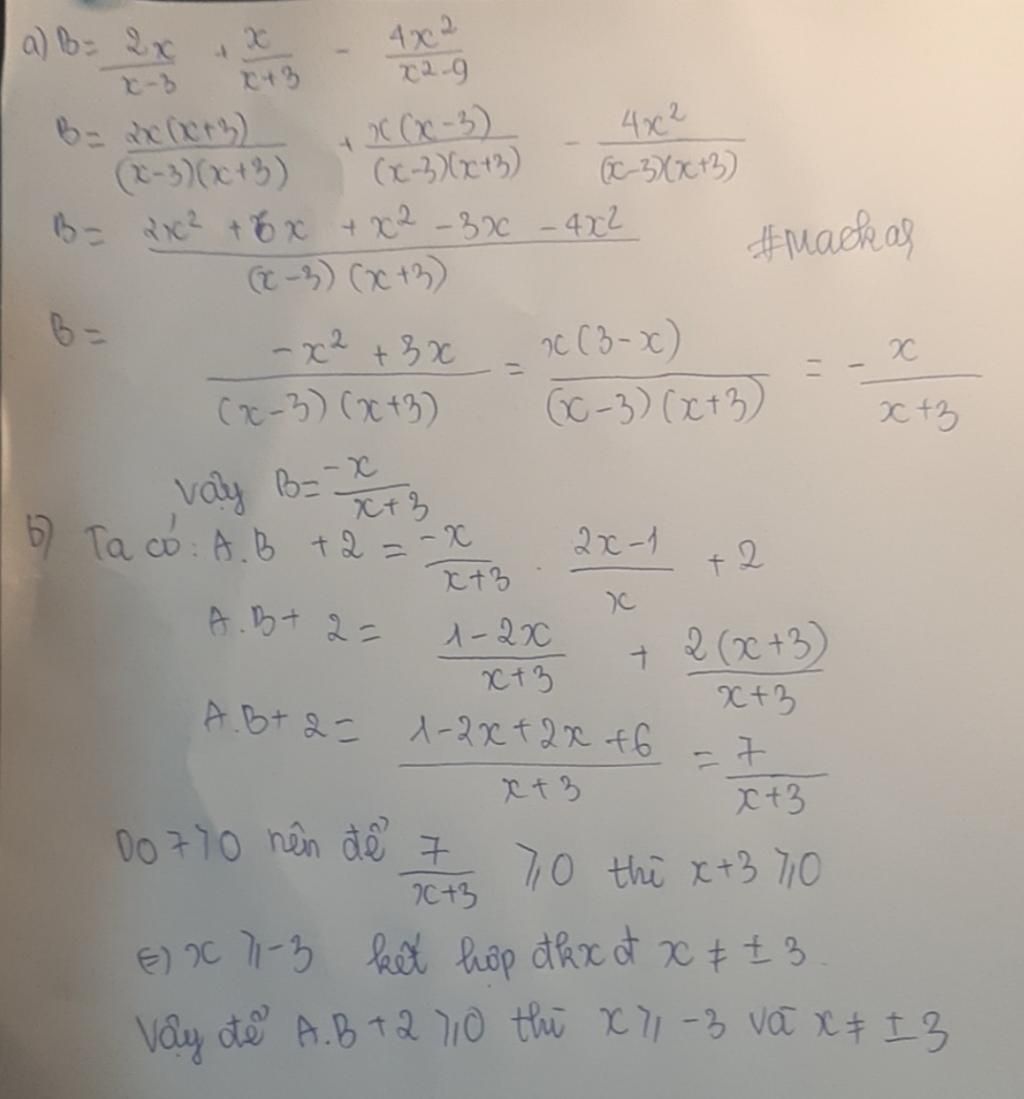 a) B = \frac{2x}{x-3} + \frac{x}{x+3} - \frac{4x^2}{x^2-9}
B = \frac{2x(x+3)}{(x-3)(x+3)} + \frac{x(x-3)}{(x-3)(x+3)} - \frac{4x^2}{(x-3)(x+3)}
B = \frac{2x^2 + 6x + x^2 - 3x - 4x^2}{(x-3)(x+3)}
B = \frac{-x^2 + 3x}{(x-3)(x+3)} = \frac{x(3-x)}{(x-3)(x+3)} = -\frac{x}{x+3}
Vậy B = \frac{-x}{x+3}
b) Ta có: A.B + 2 = \frac{-x}{x+3} . \frac{2x-1}{x} + 2
A.B + 2 = \frac{1-2x}{x+3} + \frac{2(x+3)}{x+3}
A.B + 2 = \frac{1-2x+2x+6}{x+3} = \frac{7}{x+3}
Do 7 > 0 nên để \frac{7}{x+3} ⩾ 0 thì x+3 ⩾ 0
⇔ x ⩾ -3 kết hợp đkxđ x ≠ ± 3.
Vậy để A.B + 2 ⩾ 0 thì x ⩾ -3 và x ≠ ± 3